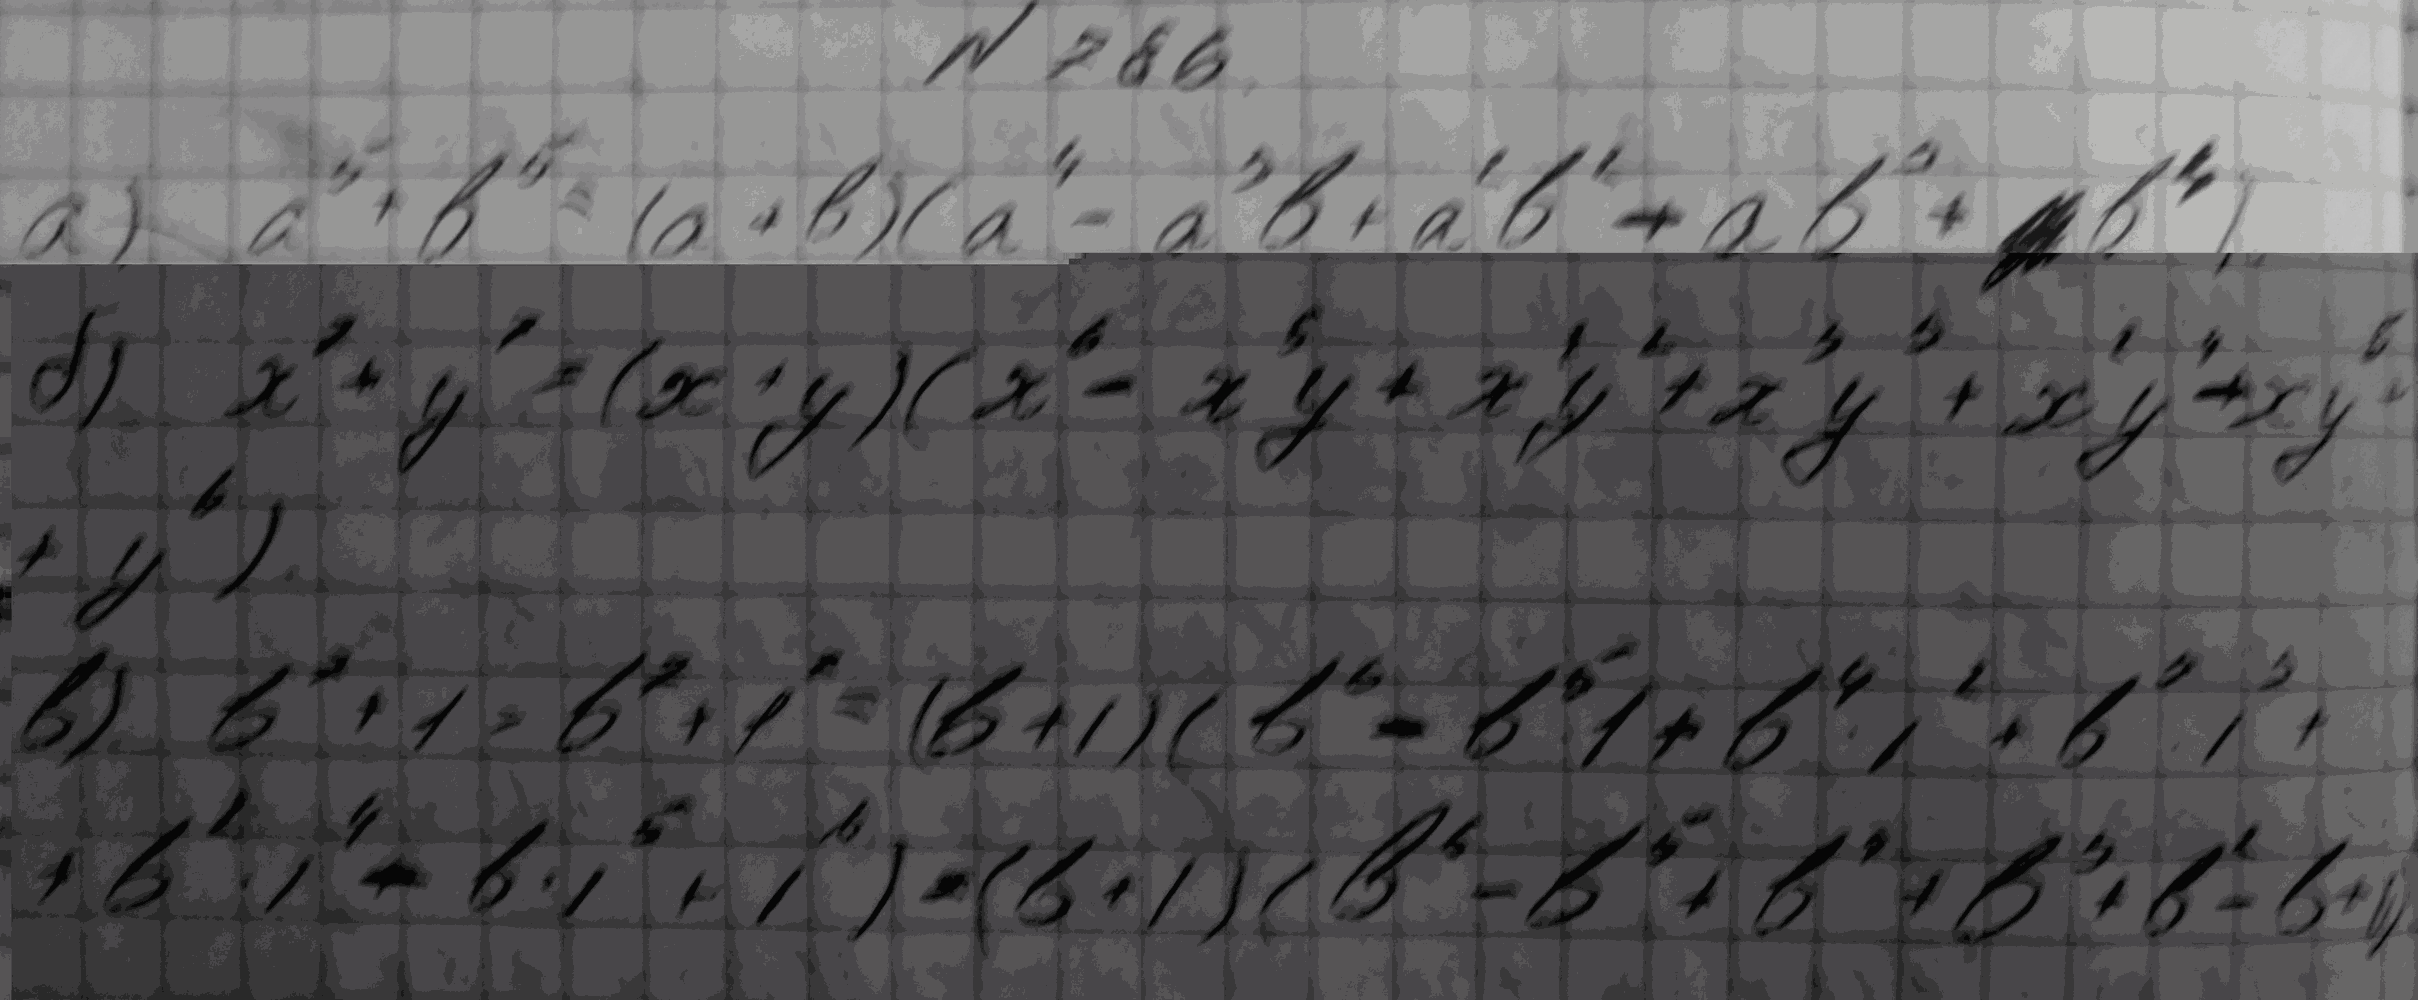 N 786
а) a⁵ + b⁵ = (a + b)(a⁴ - a³b + a²b² + ab³ + b⁴)
б) x⁷ + y⁷ = (x + y)(x⁶ - x⁵y + x⁴y² + x³y³ + x²y⁴ + xy⁵ +
+ y⁶)
в) b⁷ + 1 = b⁷ + 1⁷ = (b + 1)(b⁶ - b⁵·1 + b⁴·1² + b³·1³ +
+ b²·1⁴ - b·1⁵ + 1⁶) = (b + 1)(b⁶ - b⁵ + b⁴ + b³ + b² - b + 1)